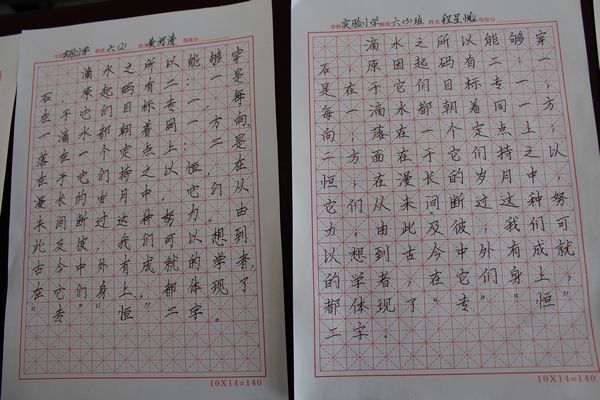 学校 实验小学 班级 六(2) 姓名 黄河清 等级分
滴水之所以能够穿
石,原起码有二:一是
在于它们目标专一,每
一滴水都朝着同一方向,
落在一个定点上;二是
在于它们持之以恒,在
漫长的岁月中,它们从
未间断过这种努力。由
此及彼,我们可以想到
古今中外有成就的学者,
在它们身上,都体现了
“专”“恒”二字。
10X14=140
学校 实验小学 班级 六(3)班 姓名 程昱悦 等级分
滴水之所以能够穿
石,原因起码有二:一
是在于它们目标专一,
每一滴水都朝着同一方
向,落在一个定点上;
二方面在于它们持之以
恒,在漫长的岁月中,
它们从未间断过这种努
力;由此及彼,我们可
以想到古今中外有成就
的学者,在它们身上,
都体现了“专”“恒”
二字.
10X14=140